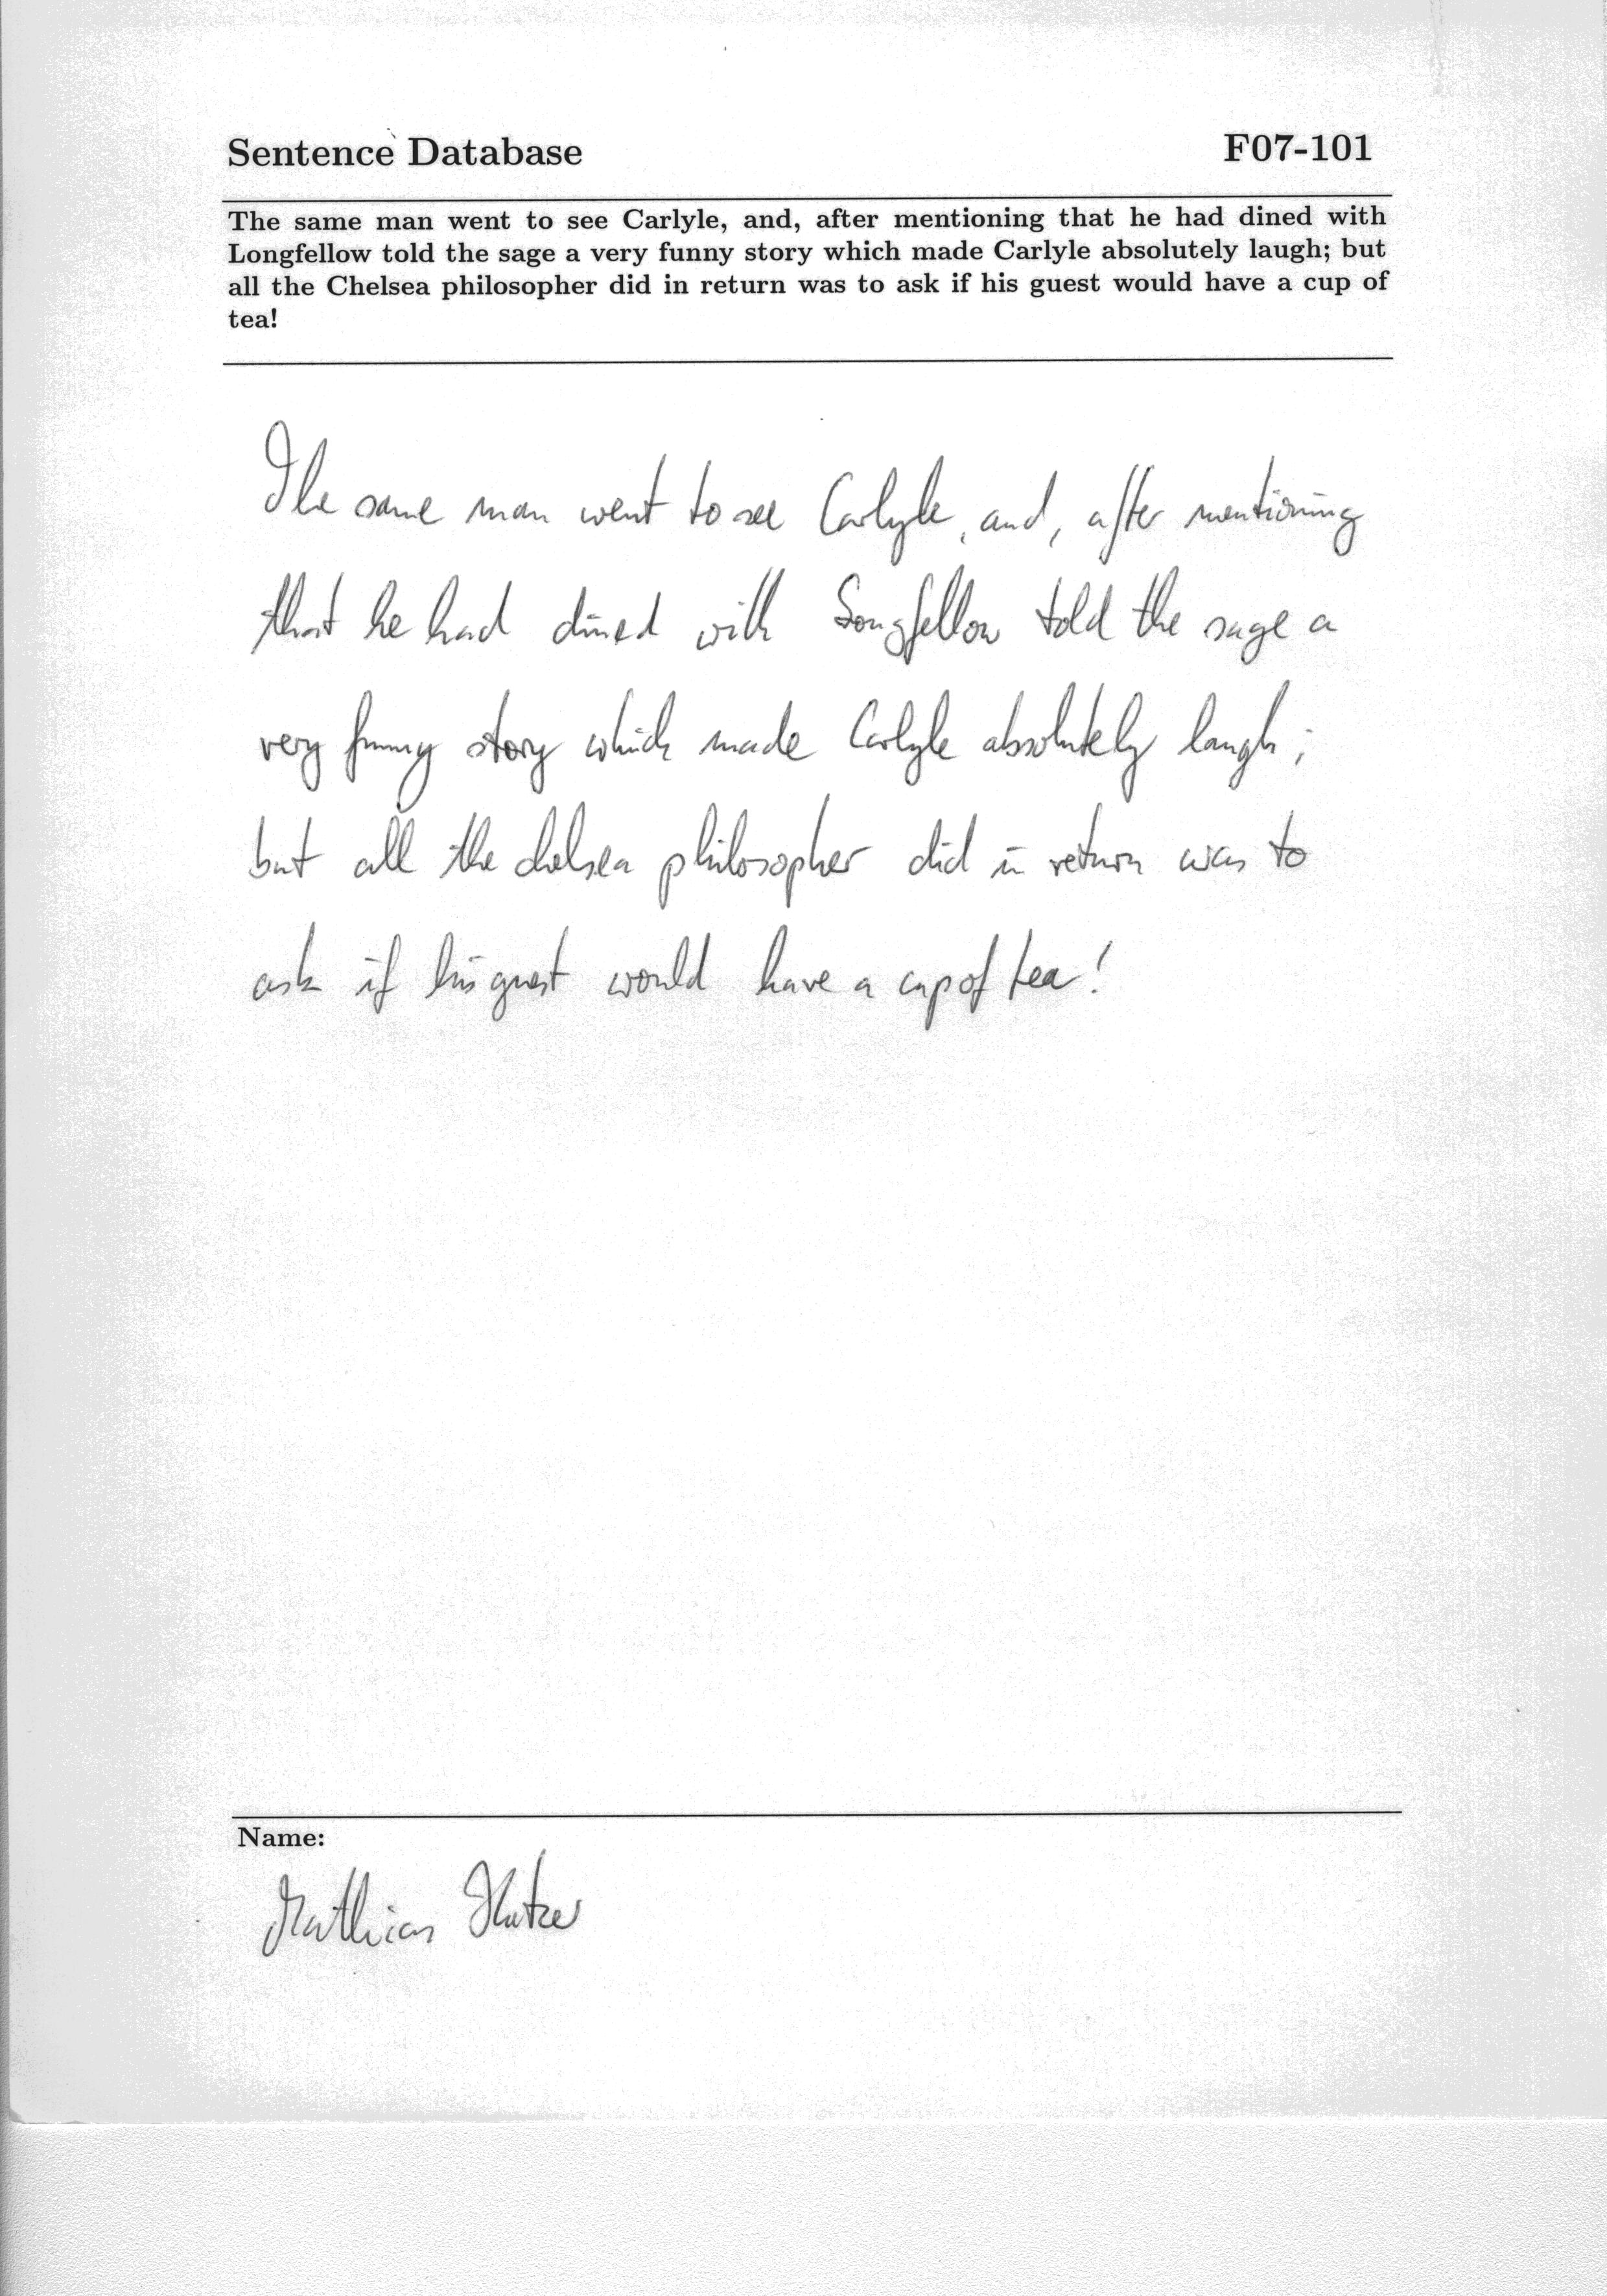 Sentence Database F07-101
The same man went to see Carlyle, and, after mentioning that he had dined with
Longfellow told the sage a very funny story which made Carlyle absolutely laugh; but
all the Chelsea philosopher did in return was to ask if his guest would have a cup of
tea!
The same man went to see Carlyle, and, after mentioning
that he had dined with Longfellow told the sage a
very funny story which made Carlyle absolutely laugh;
but all the chelsea philosopher did in return was to
ask if his guest would have a cup of tea!
Name:
Mathias